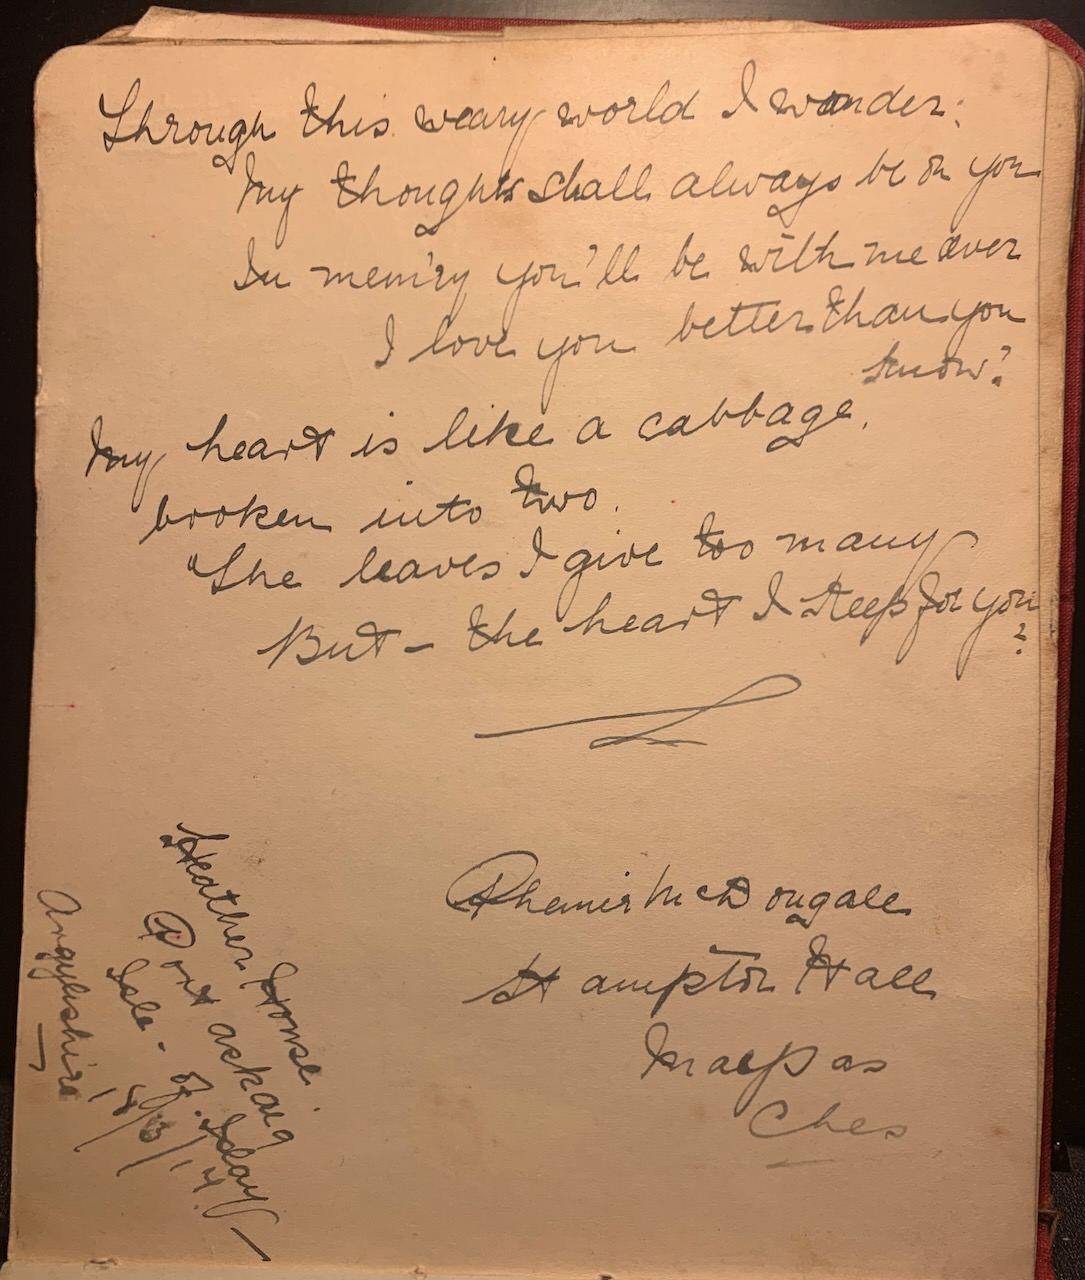 Through this weary world I wander:
My thoughts shall always be on you
In mem'ry you'll be with me ever
I love you better than you
know?
My heart is like a cabbage,
broken into two.
The leaves I give too many
But - the heart I keep for you
?
McDougall
Hampton Hall
Malpas
Ches
Heather House.
Port askaig
Isle - of. Islay -
Argyleshire